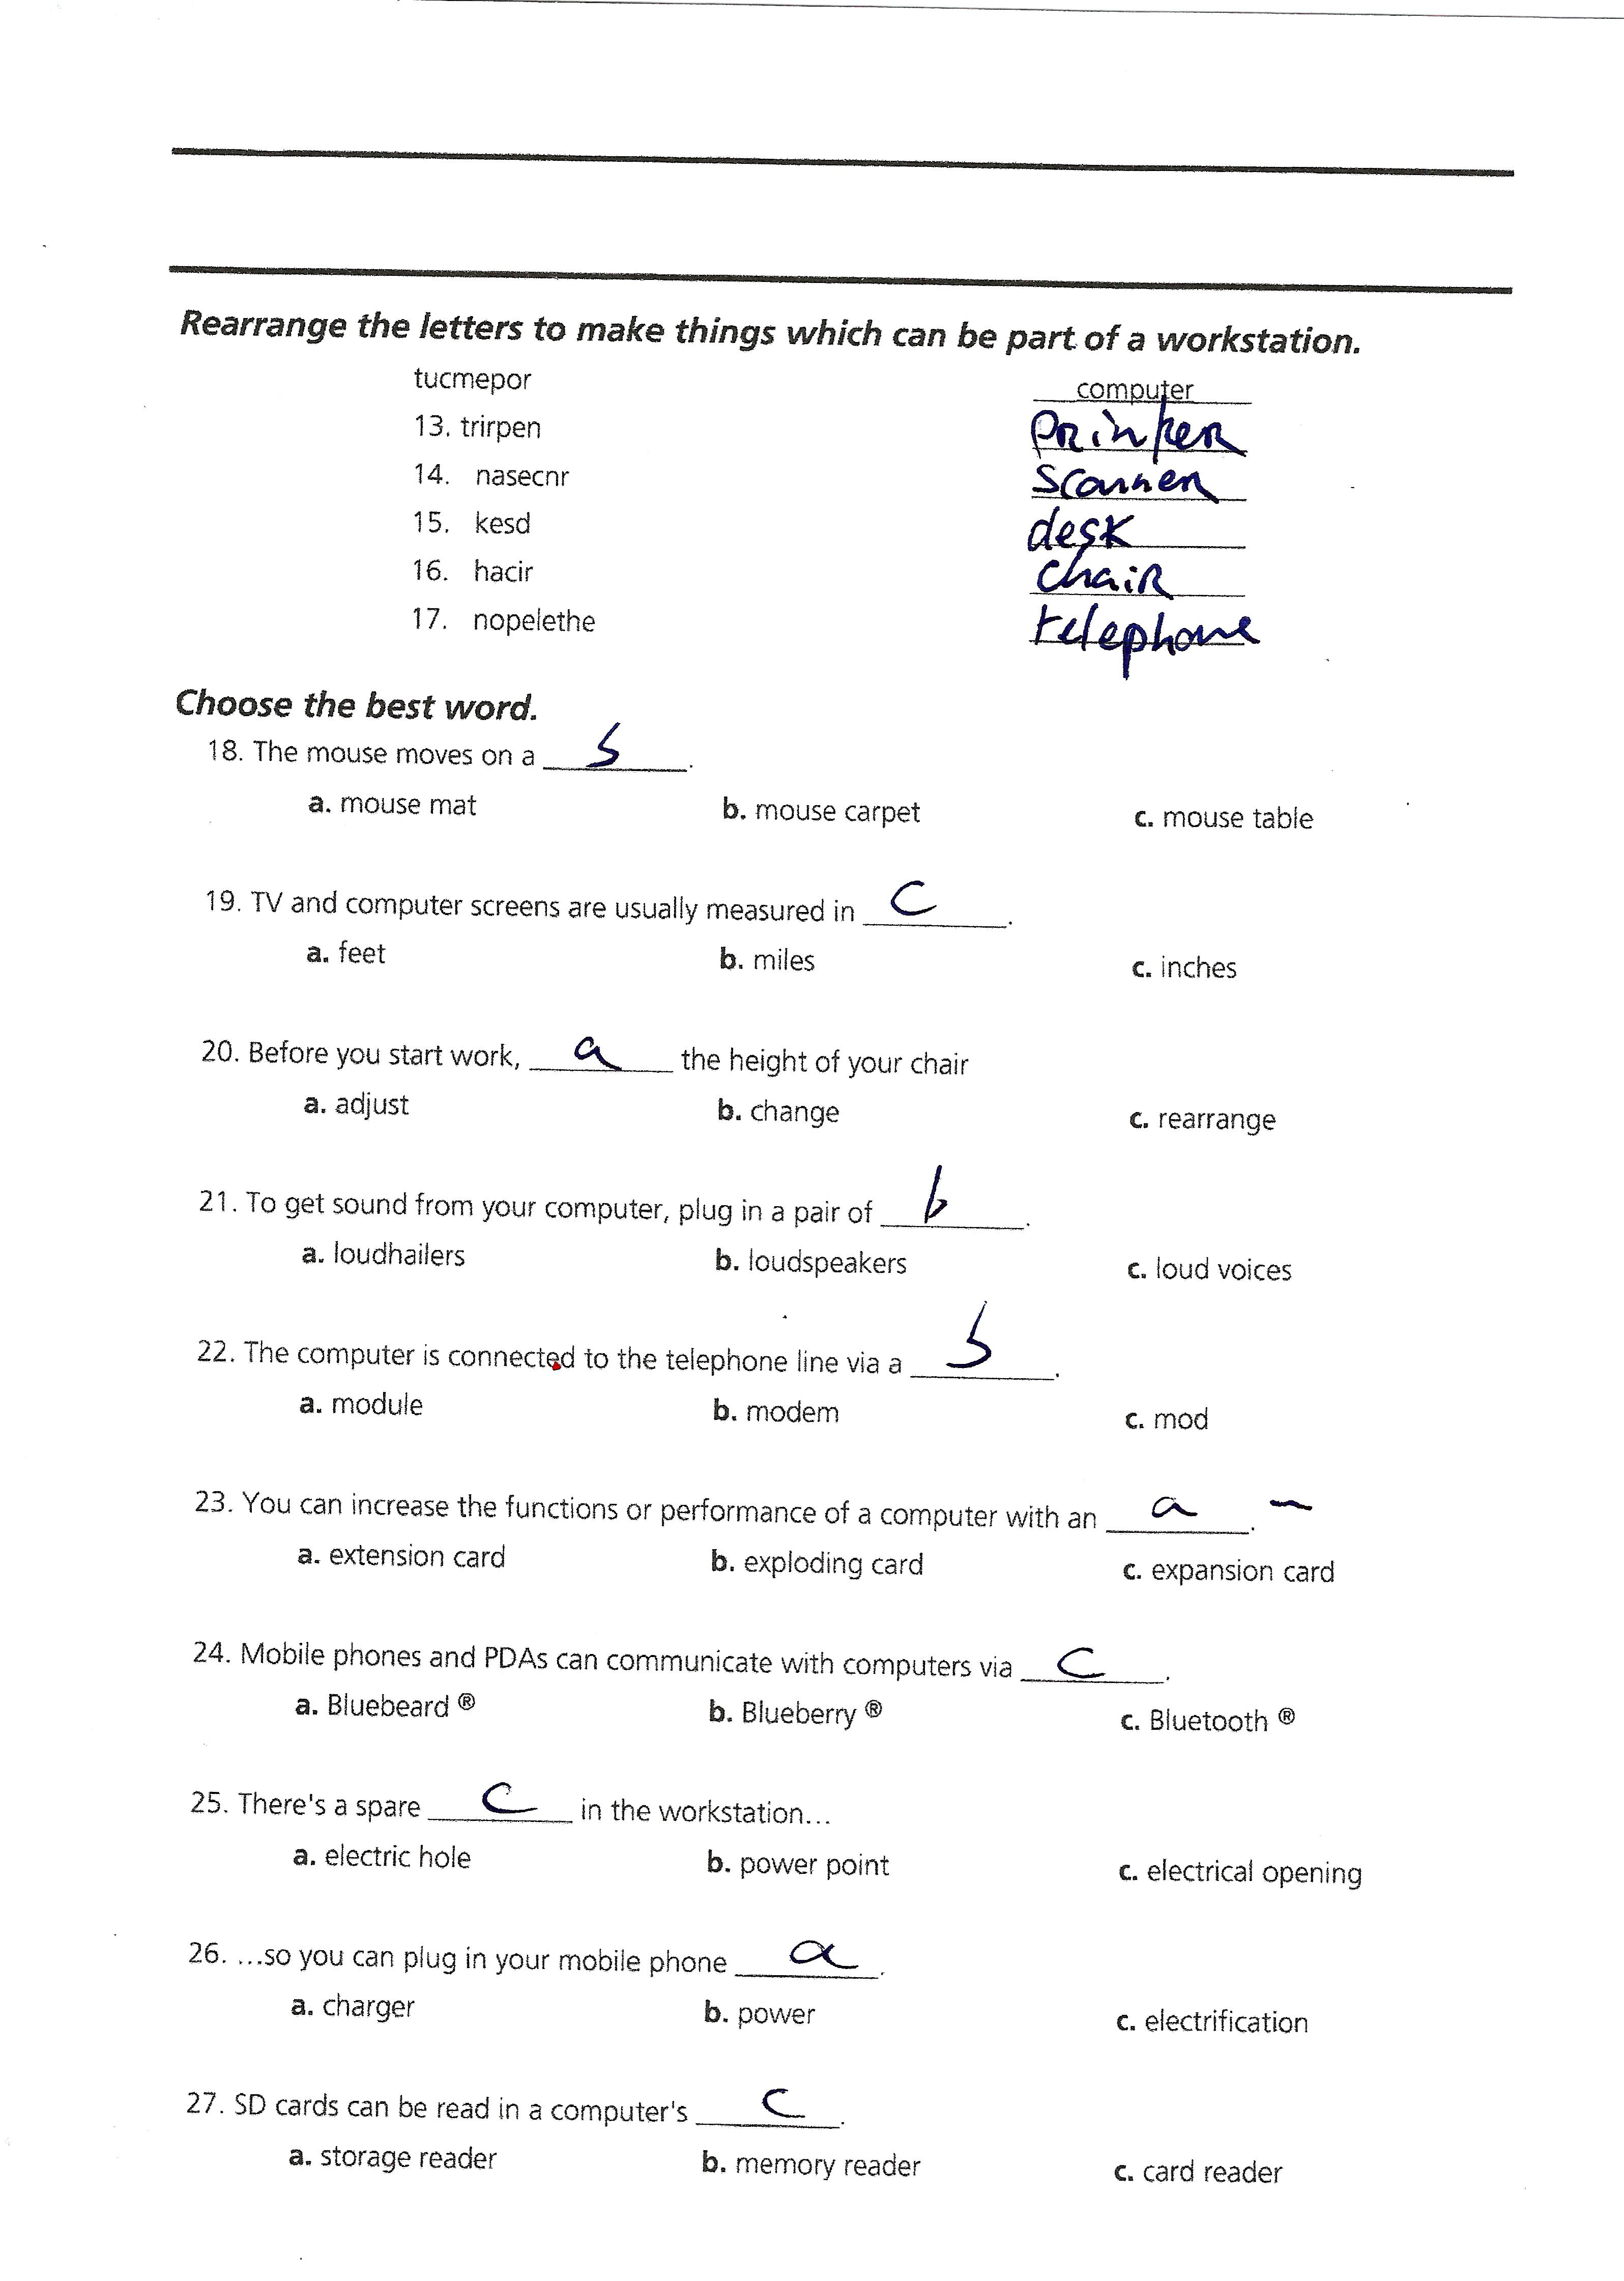 Rearrange the letters to make things which can be part of a workstation.
tucmepor computer
13. trirpen printer
14. nasecnr scanner
15. kesd desk
16. hacir chair
17. nopelethe telephone
Choose the best word.
18. The mouse moves on a b.
a. mouse mat b. mouse carpet c. mouse table
19. TV and computer screens are usually measured in c.
a. feet b. miles c. inches
20. Before you start work, a the height of your chair
a. adjust b. change c. rearrange
21. To get sound from your computer, plug in a pair of b.
a. loudhailers b. loudspeakers c. loud voices
22. The computer is connected to the telephone line via a b.
a. module b. modem c. mod
23. You can increase the functions or performance of a computer with an a. –
a. extension card b. exploding card c. expansion card
24. Mobile phones and PDAs can communicate with computers via c.
a. Bluebeard ® b. Blueberry ® c. Bluetooth ®
25. There's a spare c in the workstation...
a. electric hole b. power point c. electrical opening
26. ...so you can plug in your mobile phone a.
a. charger b. power c. electrification
27. SD cards can be read in a computer's c.
a. storage reader b. memory reader c. card reader